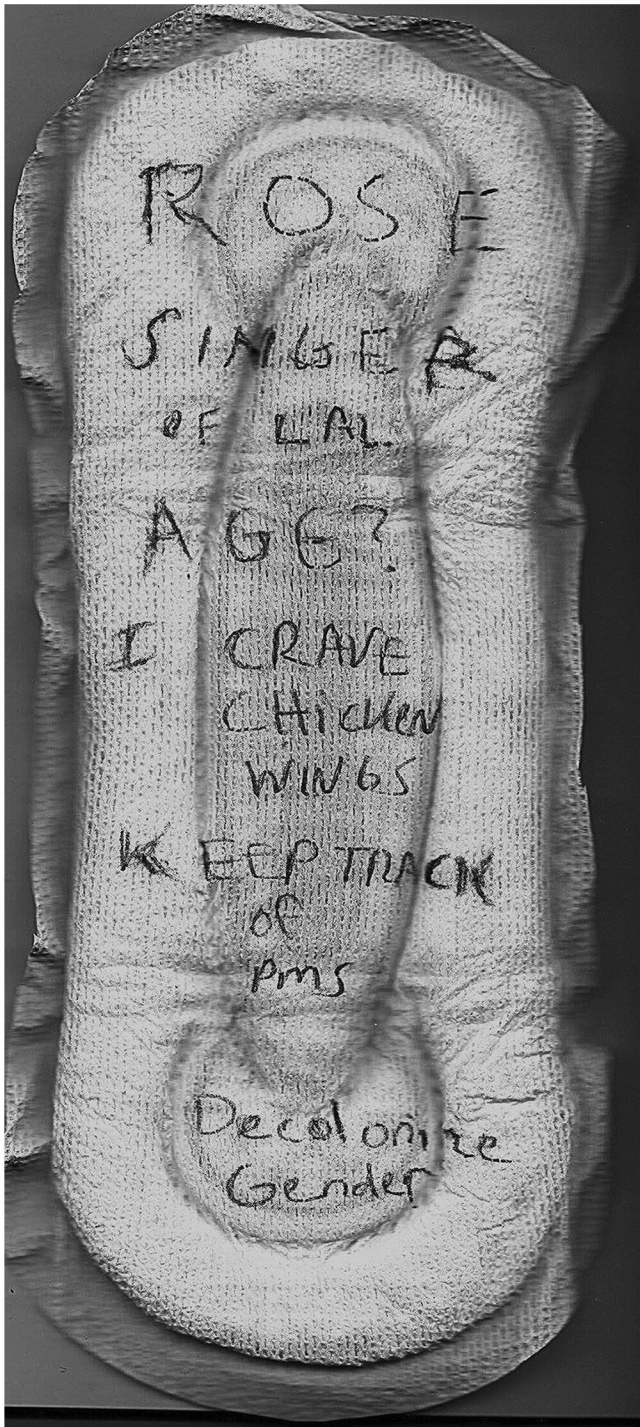 ROSE
SINGER
OF LAL.
AGE?
I CRAVE
CHicken
WINGS
KEEP TRACK
of
pms
Decolonize
Gender